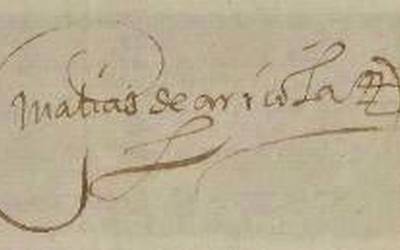 matias de arriola